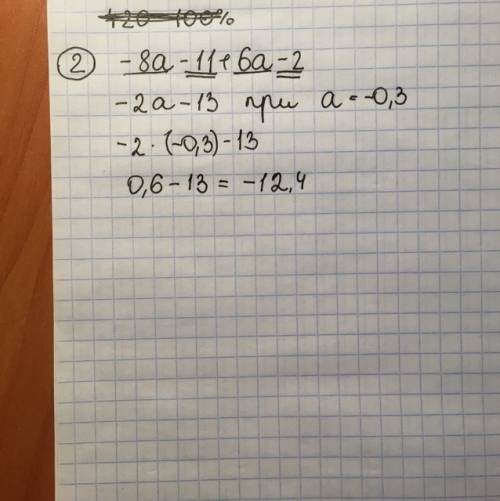 120 100%
② -8a - 11 + 6a - 2
-2a - 13 при a = -0,3
-2 · (-0,3) - 13
0,6 - 13 = -12,4